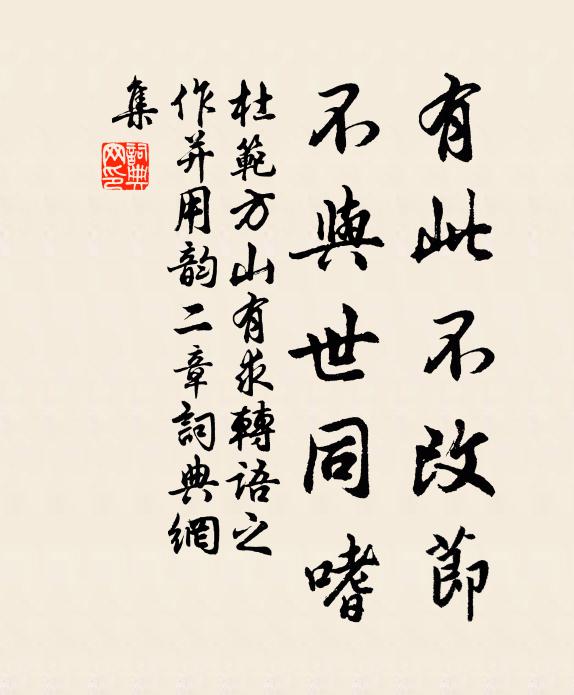 有此不改節
不與世同嗜
杜範方山有求轉語之
作并用韵二章詞典網
集
詞典網印